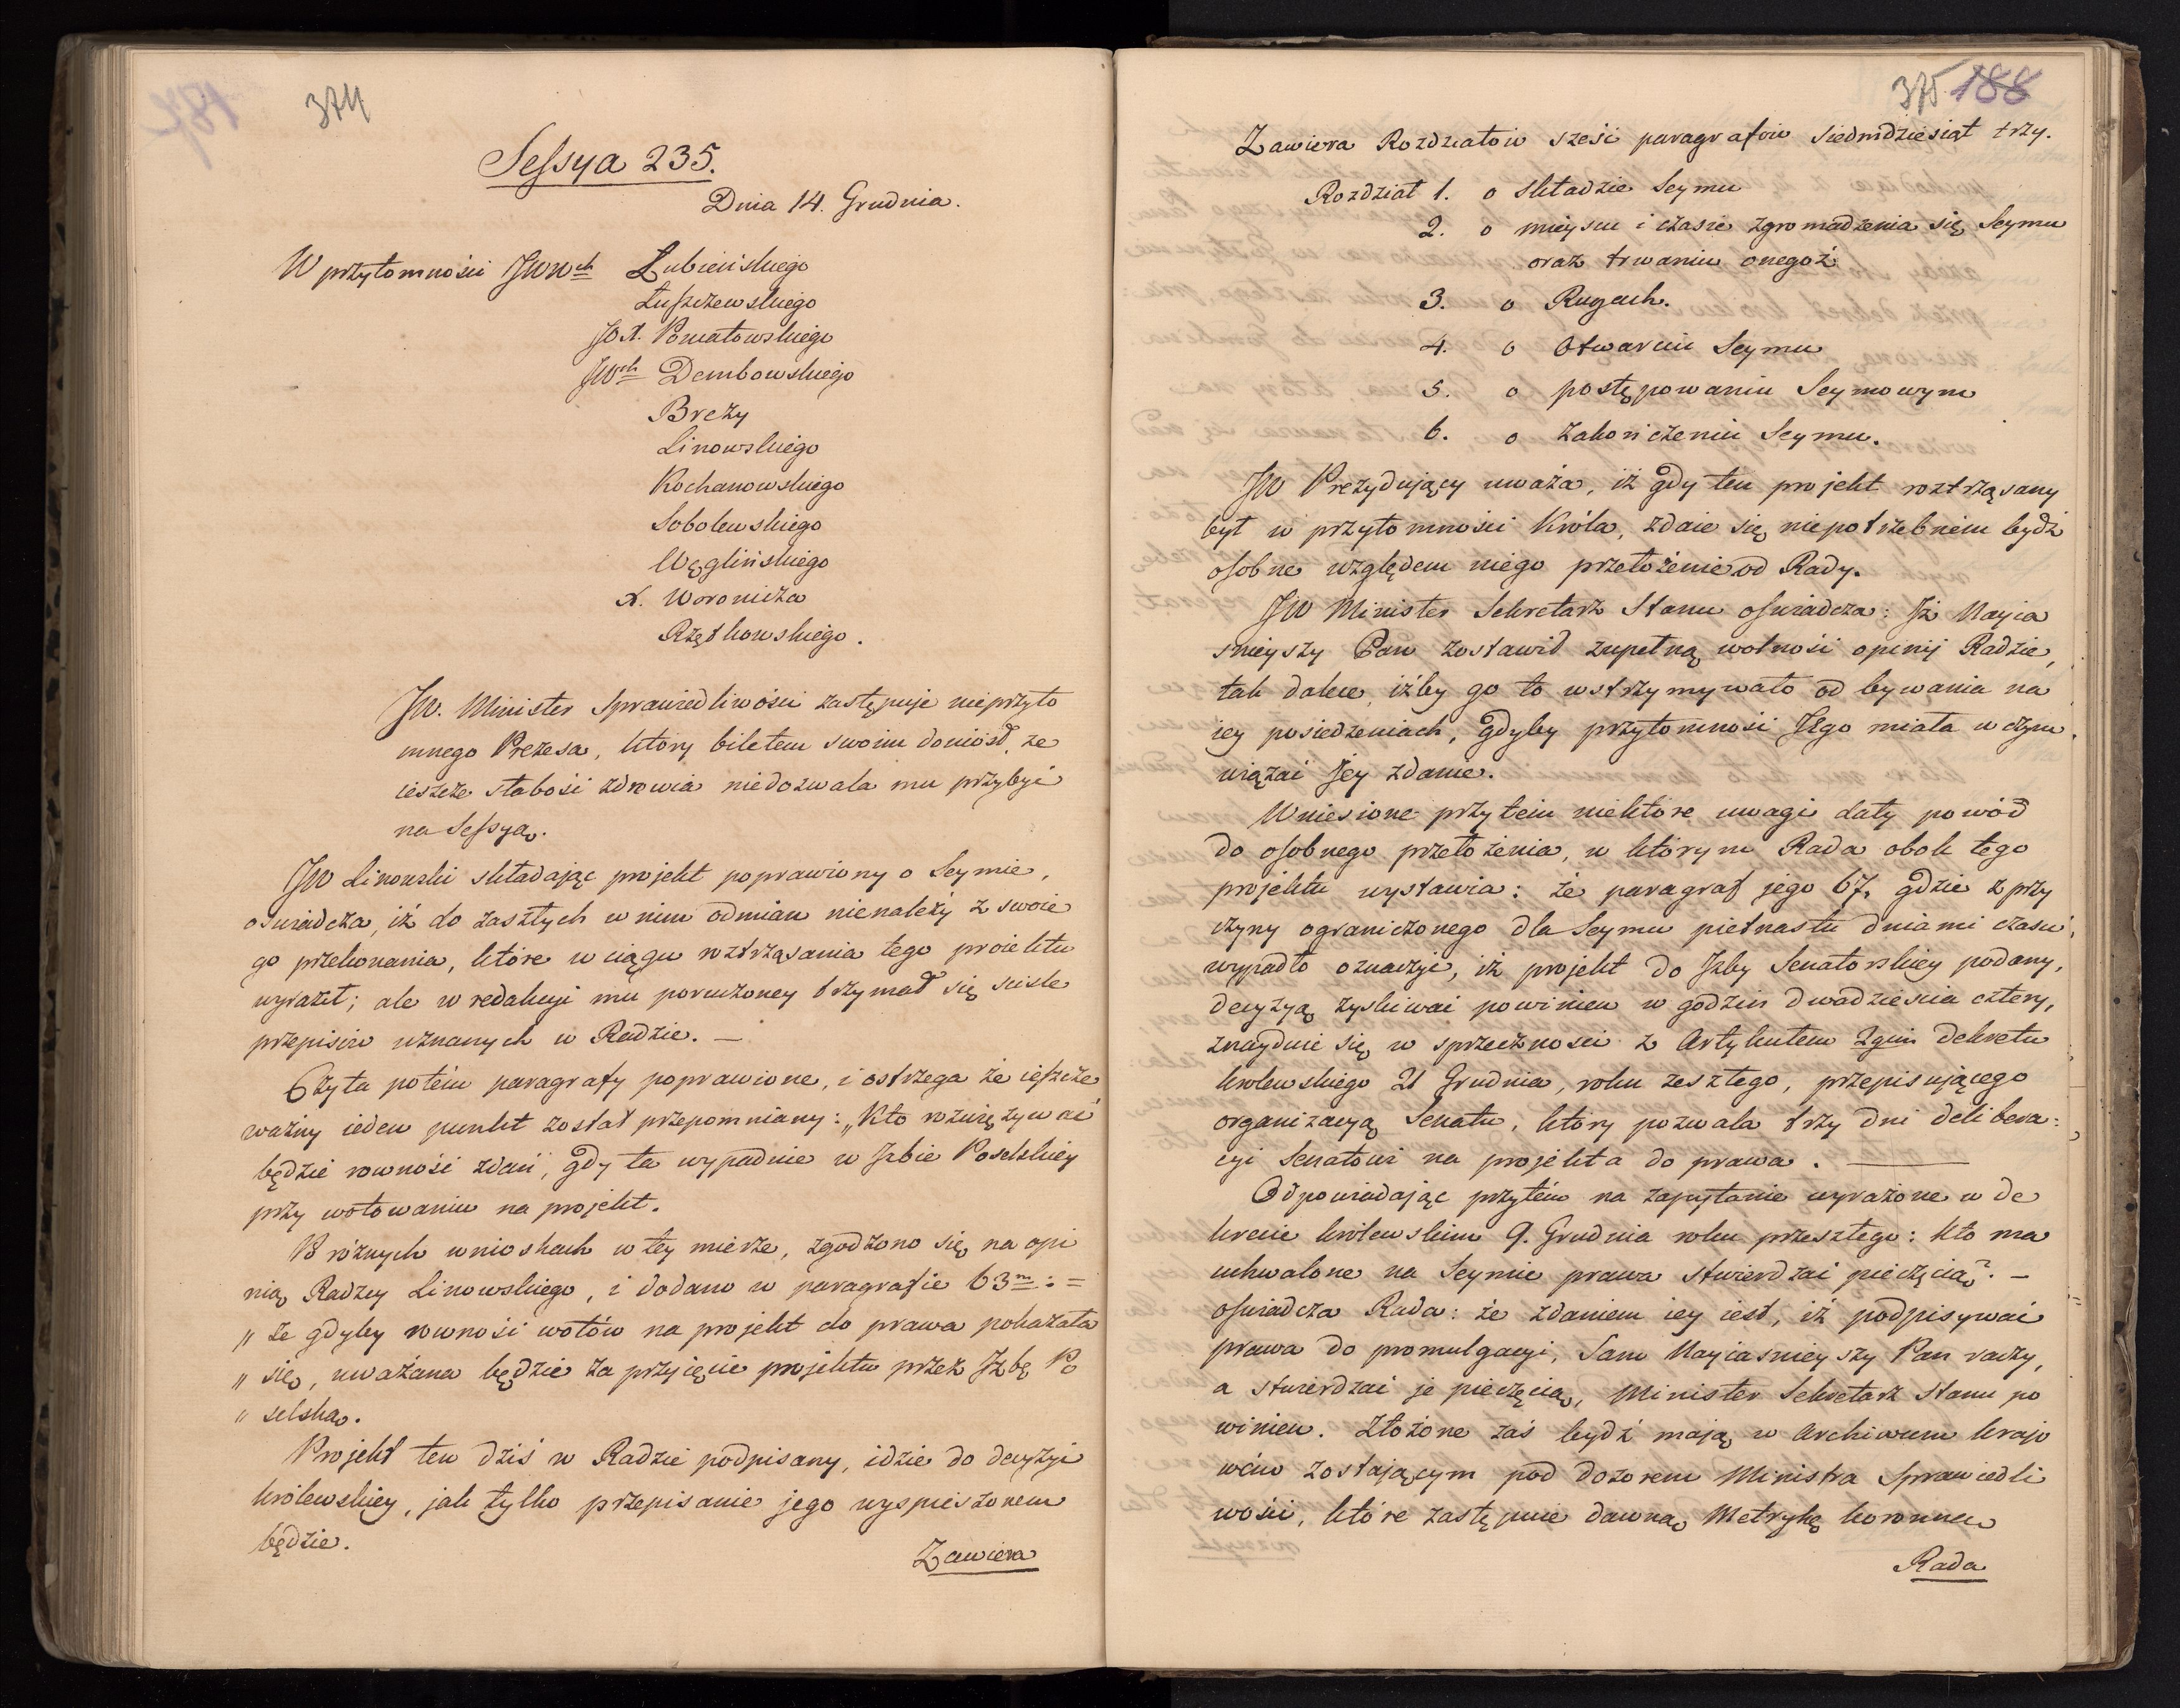 374
Sessya 235.
Dnia 14. Grudnia.
W przytomności JWWch Łubieńskiego
Łuszczewskiego
JO. X. Poniatowskiego
JWch Dembowskiego
Brezy
Linowskiego
Kochanowskiego
Sobolewskiego
Węglińskiego
X. Woronicza
Rzętkowskiego.
JW. Minister Sprawiedliwości zastępuje nieprzyto
mnego Prezesa, który biletem swoim doniósł, że
ieszcze słabość zdrowia niedozwala mu przybyć
na Sessyą.
JW Linowski składając projekt poprawiony o Seymie,
oświadcza, iż do zaszłych w nim odmian nienależy z swoie
go przekonania, które w ciągu roztrząsania tego proiektu
wyraził; ale w redakcyi mu poruczoney trzymał się sciśle
przepisów uznanych w Radzie. —
Czyta potém paragrafy poprawione, i ostrzega że ieszcze
ważny ieden punkt został przepomniany: „Kto rozwięzywać
będzie rowność zdań, gdy ta wypadnie w Izbie Poselskiey
przy wotowaniu na projekt.
Po różnych wnioskach w tey mierze, zgodzono się na opi
nią Radzcy Linowskiego, i dodano w paragrafie 63m: =
„ że gdyby rowność wotów na projekt do prawa pokazała
„ się, uważana będzie za przyięcie projektu przez Izbę Po
„ selską.
Projekt ten dziś w Radzie podpisany, idzie do decyzyi
królewskiey, jak tylko przepisanie jego wyspieszonem
będzie.
Zawiera
375 188
Zawiera Rozdziałów sześć paragrafów siedmdziesiąt trzy.
Rozdział 1. o składzie Seymu
2. o mieyscu i czasie zgromadzenia się Seymu
oraz trwaniu onegoż
3. o Rugach.
4. o Otwarciu Seymu
5. o postępowaniu Seymowym
6. o zakończeniu Seymu.
JW Prezydujący uważa, iż gdy ten projekt roztrząsany
był w przytomności Króla, zdaie się niepotrzebném bydź
osobne względem niego przełożenie od Rady.
JW Minister Sekretarz Stanu oświadcza: Iż Nayia
śnieyszy Pan zostawił zupełną wolność opinij Radzie,
tak dalece, iżby go to wstrzymywało od bywania na
iey posiedzeniach, gdyby przytomność Jego miała w czym
wiązać Jey zdanie.
Wniesione przytém niektóre uwagi dały powód
do osobnego przełożenia, w którym Rada obok tego
projektu wystawia: że paragraf jego 67, gdzie z przy
czyny ograniczonego dla Seymu piętnastu dniami czasu,
wypadło oznaczyć, iż projekt do Izby Senatorskiey podany,
decyzyą zyskiwać powinien w godzin dwadzieścia cztery,
znayduie się w sprzeczności z Artykułem 2gim dekretu
królewskiego 21 Grudnia, roku zeszłego, przepisującego
organizacyą Senatu, który pozwala trzy dni delibera:
cyi Senatowi na projekta do prawa. —
Odpowiadając przytém na zapytanie wyrażone w de
krecie królewskim 9. Grudnia roku przeszłego: kto ma
uchwalone na Seymie prawa stwierdzać pieczęcią? —
oświadcza Rada: że zdaniem iey iest, iż podpisywać
prawa do promulgacyi, Sam Nayiaśnieyszy Pan raczy,
a stwierdzać je pieczęcią, Minister Sekretarz Stanu po
winien. Złożone zaś bydź mają w Archiwum krajo
wém zostającym pod dozorem Ministra Sprawiedli
wości, które zastępuie dawną Metrykę koronną
Rada